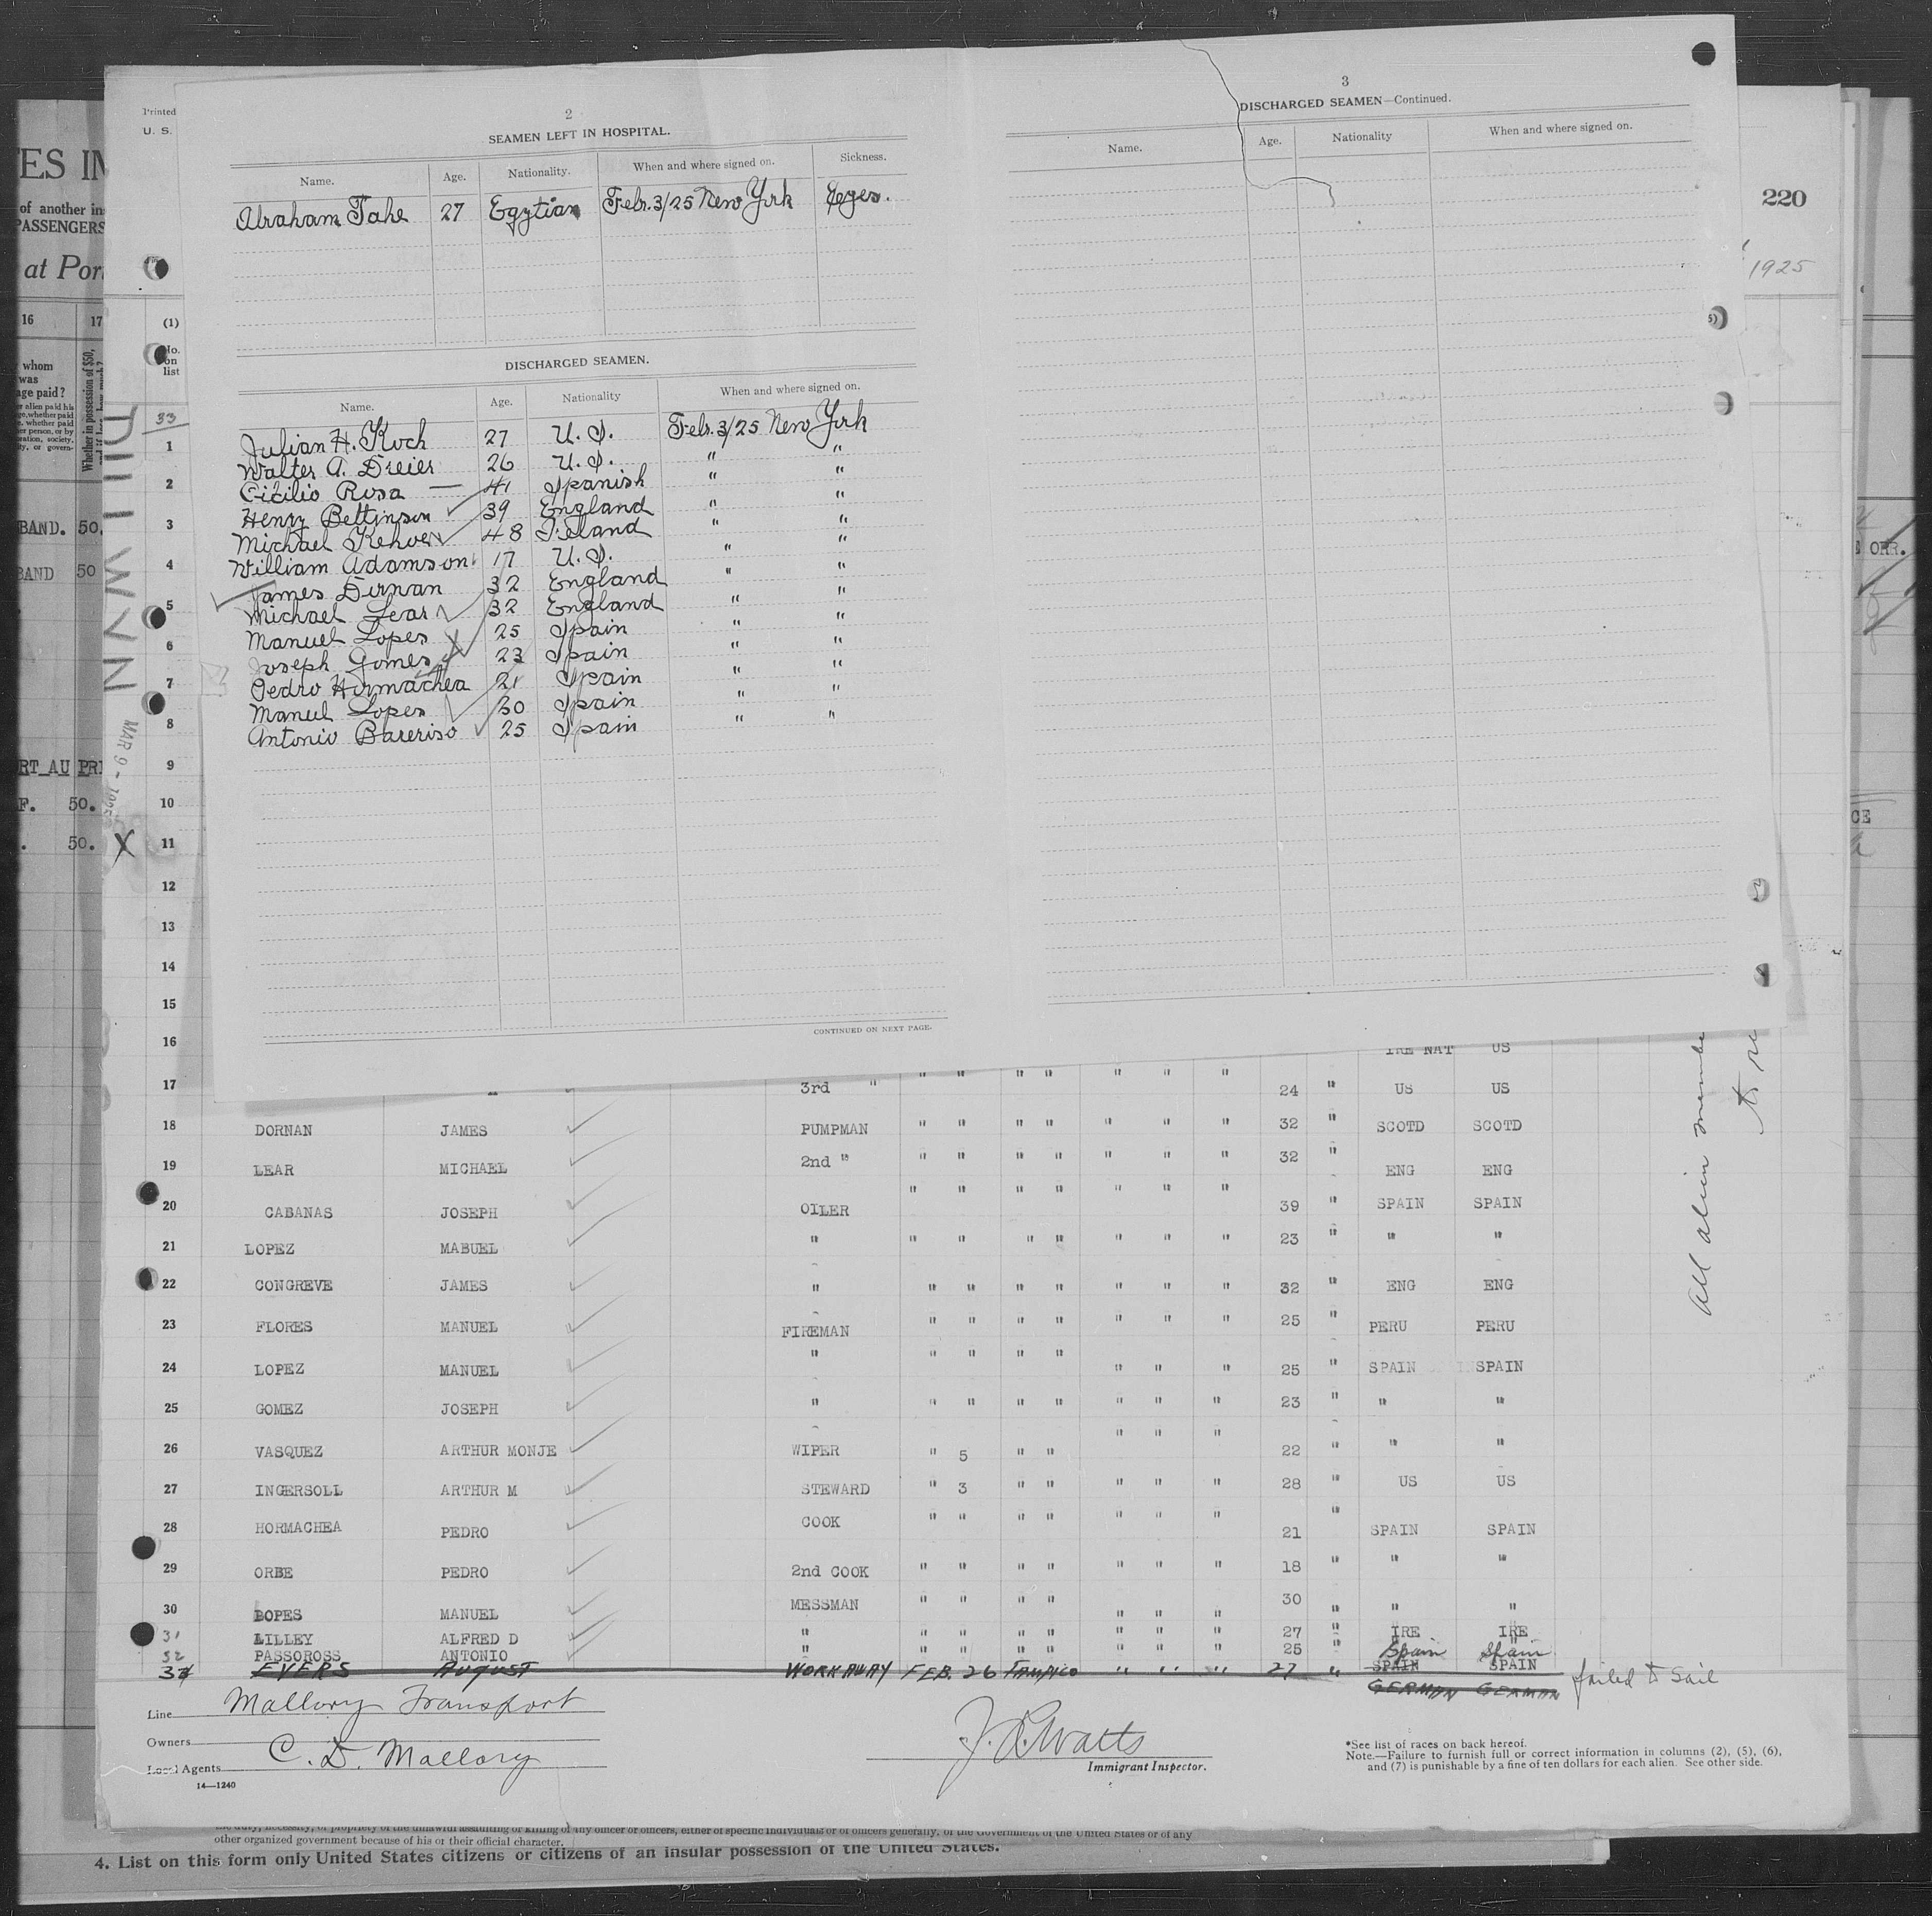 2
SEAMEN LEFT IN HOSPITAL.
Name. Age. Nationality. When and where signed on. Sickness.
Abraham Tahe 27 Egytian Febr. 3/25 New York Eyes.
DISCHARGED SEAMEN.
Name. Age. Nationality When and where signed on.
Julian H. Koch 27 U. S. Febr. 3/25 New York
Walter A. Dreier 26 U. S. " "
Cicilio Rosa — 41 Spanish " "
Henry Bettinson 39 England " "
Michael Kehoe 48 Ireland " "
William Adamson 17 U. S. " "
James Dirnan 32 England " "
Michael Lear 32 England " "
Manuel Lopes 25 Spain " "
Joseph Gomes 23 Spain " "
Pedro Hirmachea 21 Spain " "
Manuel Lopes 30 Spain " "
Antonio Bareriso 25 Spain " "
CONTINUED ON NEXT PAGE.
3
DISCHARGED SEAMEN—Continued.
Name. Age. Nationality When and where signed on.
Printed
U. S.
220
1925
(1)
No. on list
33
1
2
3
4
5
6
7
8
9
10
X 11
12
13
14
15
16 IRE NAT US
17 3rd " " " " " " " " 24 " US US
18 DORNAN JAMES PUMPMAN " " " " " " " 32 " SCOTD SCOTD
19 LEAR MICHAEL 2nd " " " " " " " " 32 " ENG ENG
20 CABANAS JOSEPH OILER " " " " " " " 39 " SPAIN SPAIN
21 LOPEZ MABUEL " " " " " " " " 23 " " "
22 CONGREVE JAMES " " " " " " " " 32 " ENG ENG
23 FLORES MANUEL FIREMAN " " " " " " " 25 " PERU PERU
24 LOPEZ MANUEL " " " " " " " " 25 " SPAIN SPAIN
25 GOMEZ JOSEPH " " " " " " " " 23 " " "
26 VASQUEZ ARTHUR MONJE WIPER " 5 " " " " " 22 " " "
27 INGERSOLL ARTHUR M STEWARD " 3 " " " " " 28 " US US
28 HORMACHEA PEDRO COOK " " " " " " " 21 " SPAIN SPAIN
29 ORBE PEDRO 2nd COOK " " " " " " " 18 " " "
30 LOPES MANUEL MESSMAN " " " " " " " 30 " " "
31 LILLEY ALFRED D " " " " " " " " 27 " IRE IRE
32 PASSOROSS ANTONIO " " " " " " " " 25 " Spain Spain
SPAIN SPAIN
33 EVERS AUGUST WORKAWAY FEB. 26 TAMPICO " " " 27 " GERMAN GERMAN failed to sail
Line Mallory Transport
Owners
C. D. Mallory
Local Agents
14—1240
J. R. Watts
Immigrant Inspector.
*See list of races on back hereof.
Note.—Failure to furnish full or correct information in columns (2), (5), (6),
and (7) is punishable by a fine of ten dollars for each alien. See other side.
All alien membe
to re
MAR 9 - 1925
ES IN
of another in
PASSENGERS
at Por
16 17
whom
was
age paid?
Whether in possession of $50,
BAND. 50.
BAND 50
RT AU PRI
F. 50.
. 50.
CE
other organized government because of his or their official character.
4. List on this form only United States citizens or citizens of an insular possession of the United States.